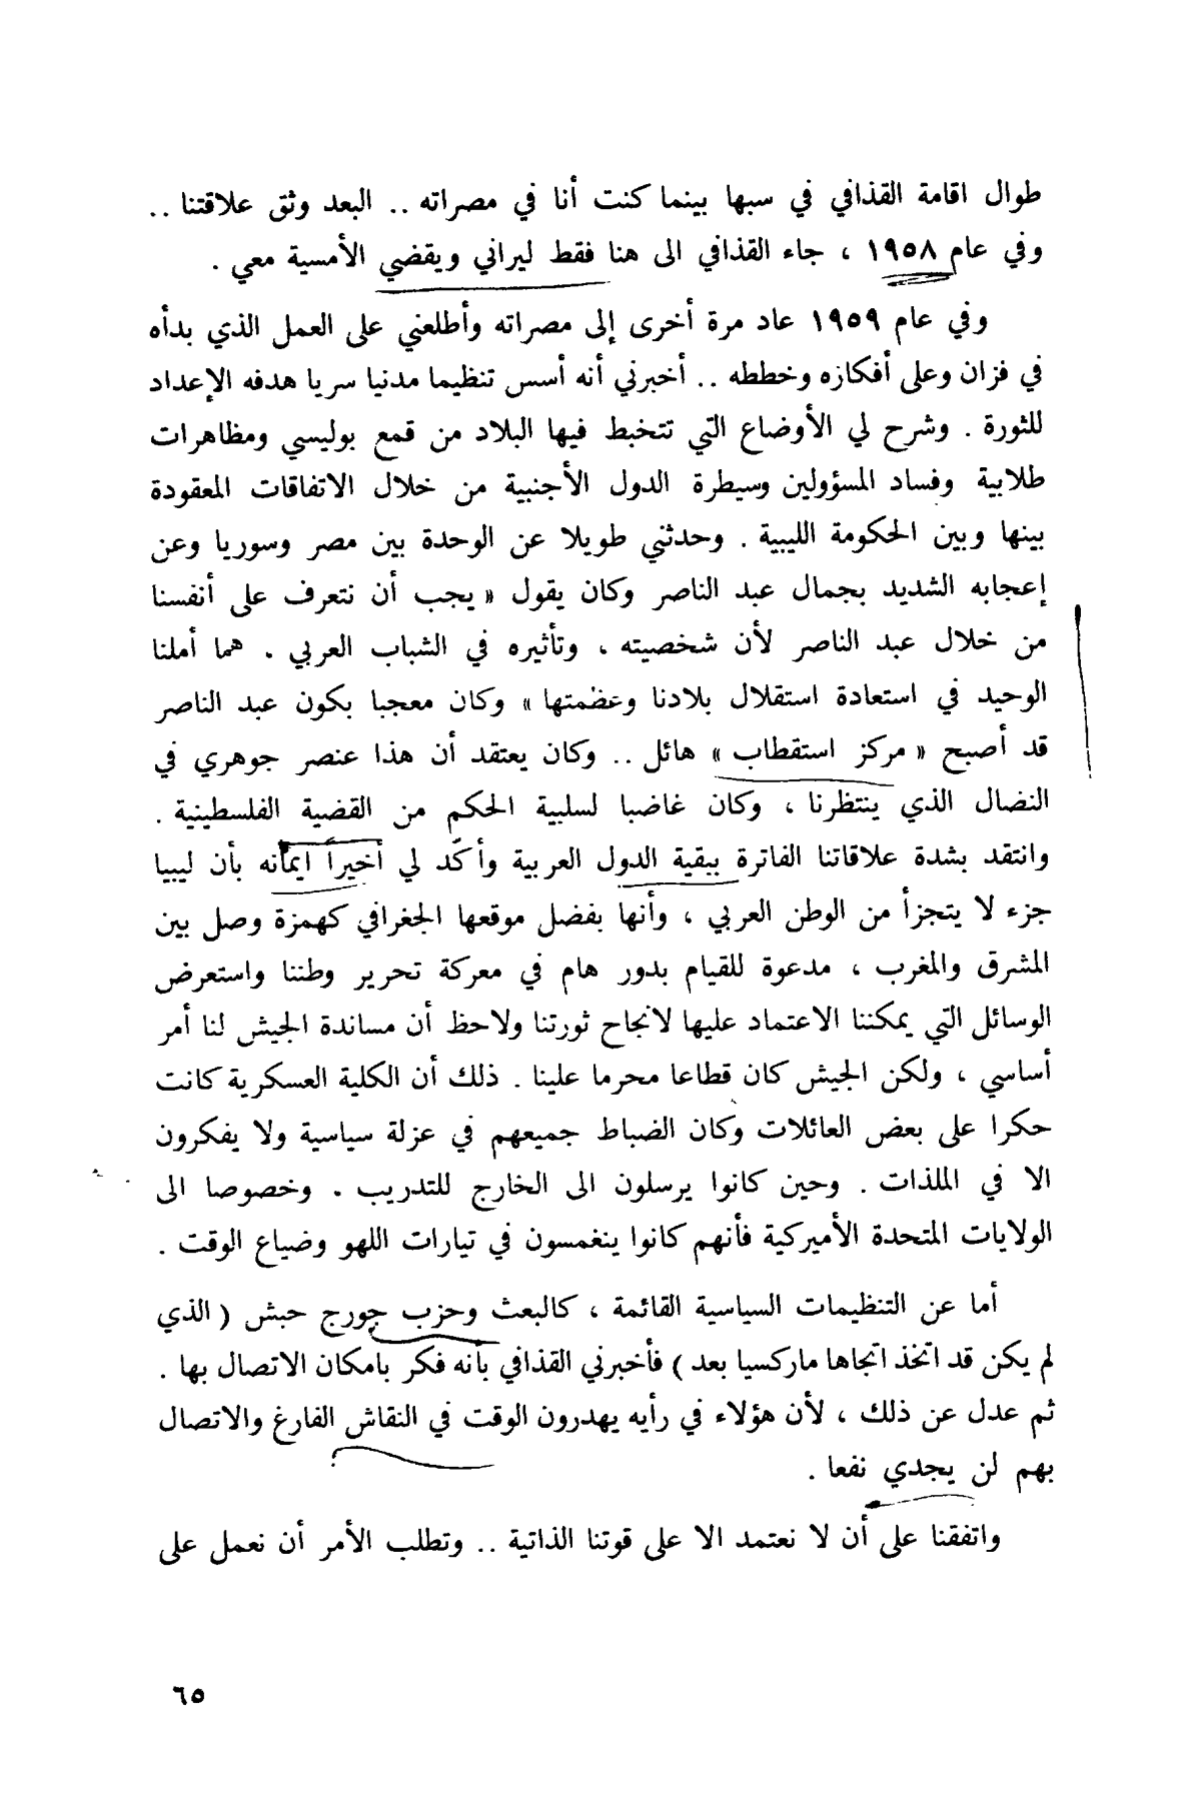 طوال اقامة القذافي في سبها بينما كنت أنا في مصراته .. البعد وثق علاقتنا ..
وفي عام ١٩٥٨ ، جاء القذافي الى هنا فقط ليراني ويقضي الأمسية معي .
وفي عام ١٩٥٩ عاد مرة أخرى إلى مصراته وأطلعني على العمل الذي بدأه
في فزان وعلى أفكازه وخططه .. أخبرني أنه أسس تنظيما مدنيا سريا هدفه الإعداد
للثورة . وشرح لي الأوضاع التي تتخبط فيها البلاد من قمع بوليسي ومظاهرات
طلابية وفساد المسؤولين وسيطرة الدول الأجنبية من خلال الاتفاقات المعقودة
بينها وبين الحكومة الليبية . وحدثني طويلا عن الوحدة بين مصر وسوريا وعن
إعجابه الشديد بجمال عبد الناصر وكان يقول « يجب أن نتعرف على أنفسنا
من خلال عبد الناصر لأن شخصيته ، وتأثيره في الشباب العربي . هما أملنا
الوحيد في استعادة استقلال بلادنا وعضمتها » وكان معجبا بكون عبد الناصر
قد أصبح « مركز استقطاب » هائل .. وكان يعتقد أن هذا عنصر جوهري في
النضال الذي ينتظرنا ، وكان غاضبا لسلبية الحكم من القضية الفلسطينية .
وانتقد بشدة علاقاتنا الفاترة ببقية الدول العربية وأكّد لي أخيراً ايمانه بأن ليبيا
جزء لا يتجزأ من الوطن العربي ، وأنها بفضل موقعها الجغرافي كهمزة وصل بين
المشرق والمغرب ، مدعوة للقيام بدور هام في معركة تحرير وطننا واستعرض
الوسائل التي يمكننا الاعتماد عليها لانجاح ثورتنا ولاحظ أن مساندة الجيش لنا أمر
أساسي ، ولكن الجيش كان قطاعا محرما علينا . ذلك أن الكلية العسكرية كانت
حكرا على بعض العائلات وكان الضباط جميعهم في عزلة سياسية ولا يفكرون
الا في الملذات . وحين كانوا يرسلون الى الخارج للتدريب . وخصوصا الى
الولايات المتحدة الأميركية فأنهم كانوا ينغمسون في تيارات اللهو وضياع الوقت .
أما عن التنظيمات السياسية القائمة ، كالبعث وحزب جورج حبش ( الذي
لم يكن قد اتخذ اتجاها ماركسيا بعد ) فأخبرني القذافي بأنه فكر بامكان الاتصال بها .
ثم عدل عن ذلك ، لأن هؤلاء في رأيه يهدرون الوقت في النقاش الفارغ والاتصال
بهم لن يجدي نفعا .
واتفقنا على أن لا نعتمد الا على قوتنا الذاتية .. وتطلب الأمر أن نعمل على
٦٥